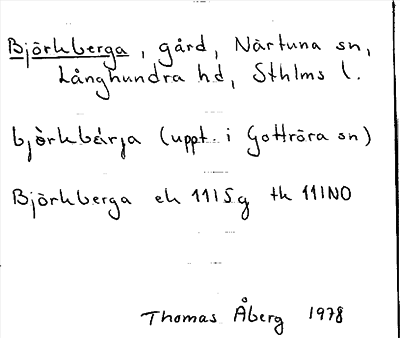 Björkberga, gård, Närtuna sn,
Långhundra hd, Sthlms l.
bjòrkbárja (uppt. i Gottröra sn)
Björkberga ek 11I5g tk 11INO
Thomas Åberg 1978